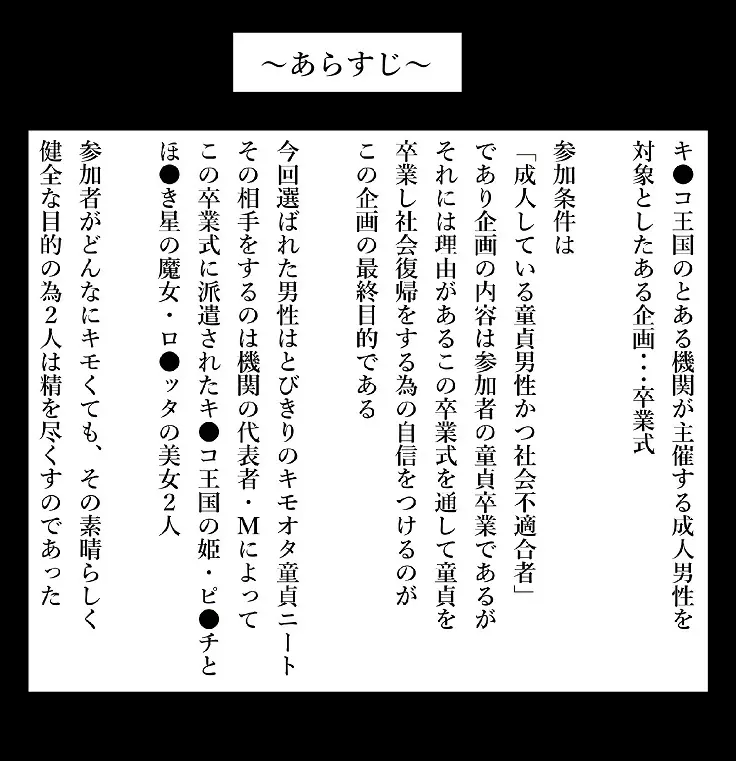 ～あらすじ～
キ●コ王国のとある機関が主催する成人男性を
対象としたある企画・・・卒業式
参加条件は
「成人している童貞男性かつ社会不適合者」
であり企画の内容は参加者の童貞卒業であるが
それには理由があるこの卒業式を通して童貞を
卒業し社会復帰をする為の自信をつけるのが
この企画の最終目的である
今回選ばれた男性はとびきりのキモオタ童貞ニート
その相手をするのは機関の代表者・Mによって
この卒業式に派遣されたキ●コ王国の姫・ピ●チと
ほ●き星の魔女・ロ●ッタの美女2人
参加者がどんなにキモくても、その素晴らしく
健全な目的の為2人は精を尽くすのであった